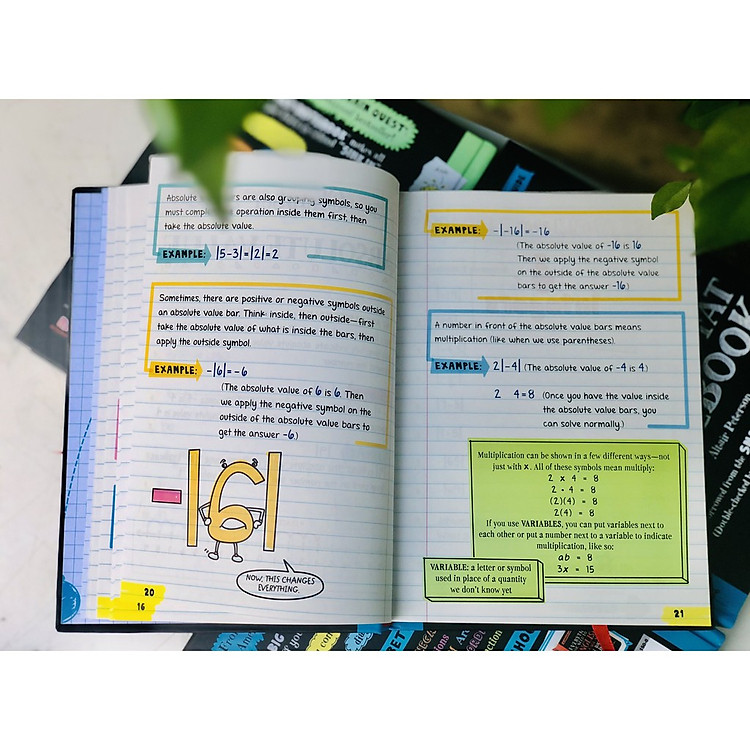 Absolute are also grouping symbols, so you
must operation inside them first, then
take the absolute value.
EXAMPLE: |5-3|=|2|=2
Sometimes, there are positive or negative symbols outside
an absolute value bar. Think: inside, then outside—first
take the absolute value of what is inside the bars, then
apply the outside symbol.
EXAMPLE: -|6|=-6
(The absolute value of 6 is 6. Then
we apply the negative symbol on the
outside of the absolute value bars to
get the answer -6.)
-|6|
NOW, THIS CHANGES
EVERYTHING.
20
16
EXAMPLE: -|-16|=-16
(The absolute value of -16 is 16.
Then we apply the negative symbol
on the outside of the absolute value
bars to get the answer -16.)
A number in front of the absolute value bars means
multiplication (like when we use parentheses).
EXAMPLE: 2|-4| (The absolute value of -4 is 4.)
2 4=8 (Once you have the value inside
the absolute value bars, you
can solve normally.)
Multiplication can be shown in a few different ways—not
just with x. All of these symbols mean multiply:
2 x 4 = 8
2 · 4 = 8
(2)(4) = 8
2(4) = 8
If you use VARIABLES, you can put variables next to
each other or put a number next to a variable to indicate
multiplication, like so:
ab = 8
3x = 15
VARIABLE: a letter or symbol
used in place of a quantity
we don't know yet
21
Altair Peterson